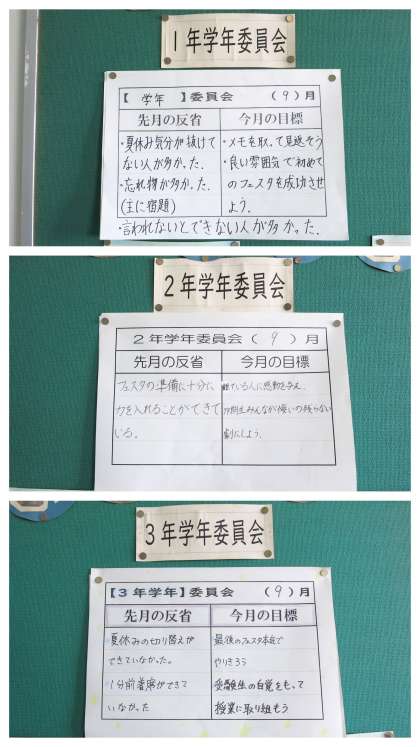 1年学年委員会
【 学年 】委員会 ( 9 )月
先月の反省
・夏休み気分が抜けて
ない人が多かった.
・忘れ物が多かった.
(主に宿題)
・言われないとできない人が多かった.
今月の目標
・メモを取って見返そう
・良い雰囲気で初めて
のフェスタを成功させ
よう.
2年学年委員会
2年学年委員会( 9 )月
先月の反省
フェスタの準備に十分に
力を入れることができて
いる。
今月の目標
観ている人に感動を与え、
期生みんなが悔いの残らない
劇にしよう.
3年学年委員会
【3年学年】委員会 ( 9 )月
先月の反省
夏休みの切り替えが
できていなかった。
1分前着席ができて
いなかった
今月の目標
最後のフェスタ本気で
やりきろう
受験生の自覚をもって
授業に取り組もう